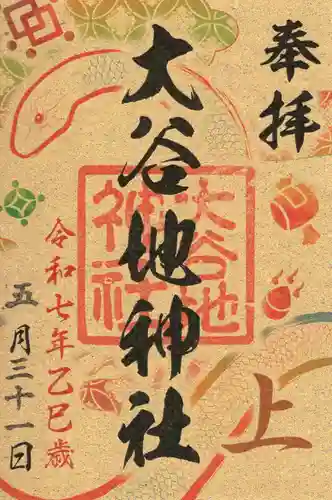 奉拝
上
大谷地神社
大谷地
神社
令和七年乙巳歳
五月三十一日